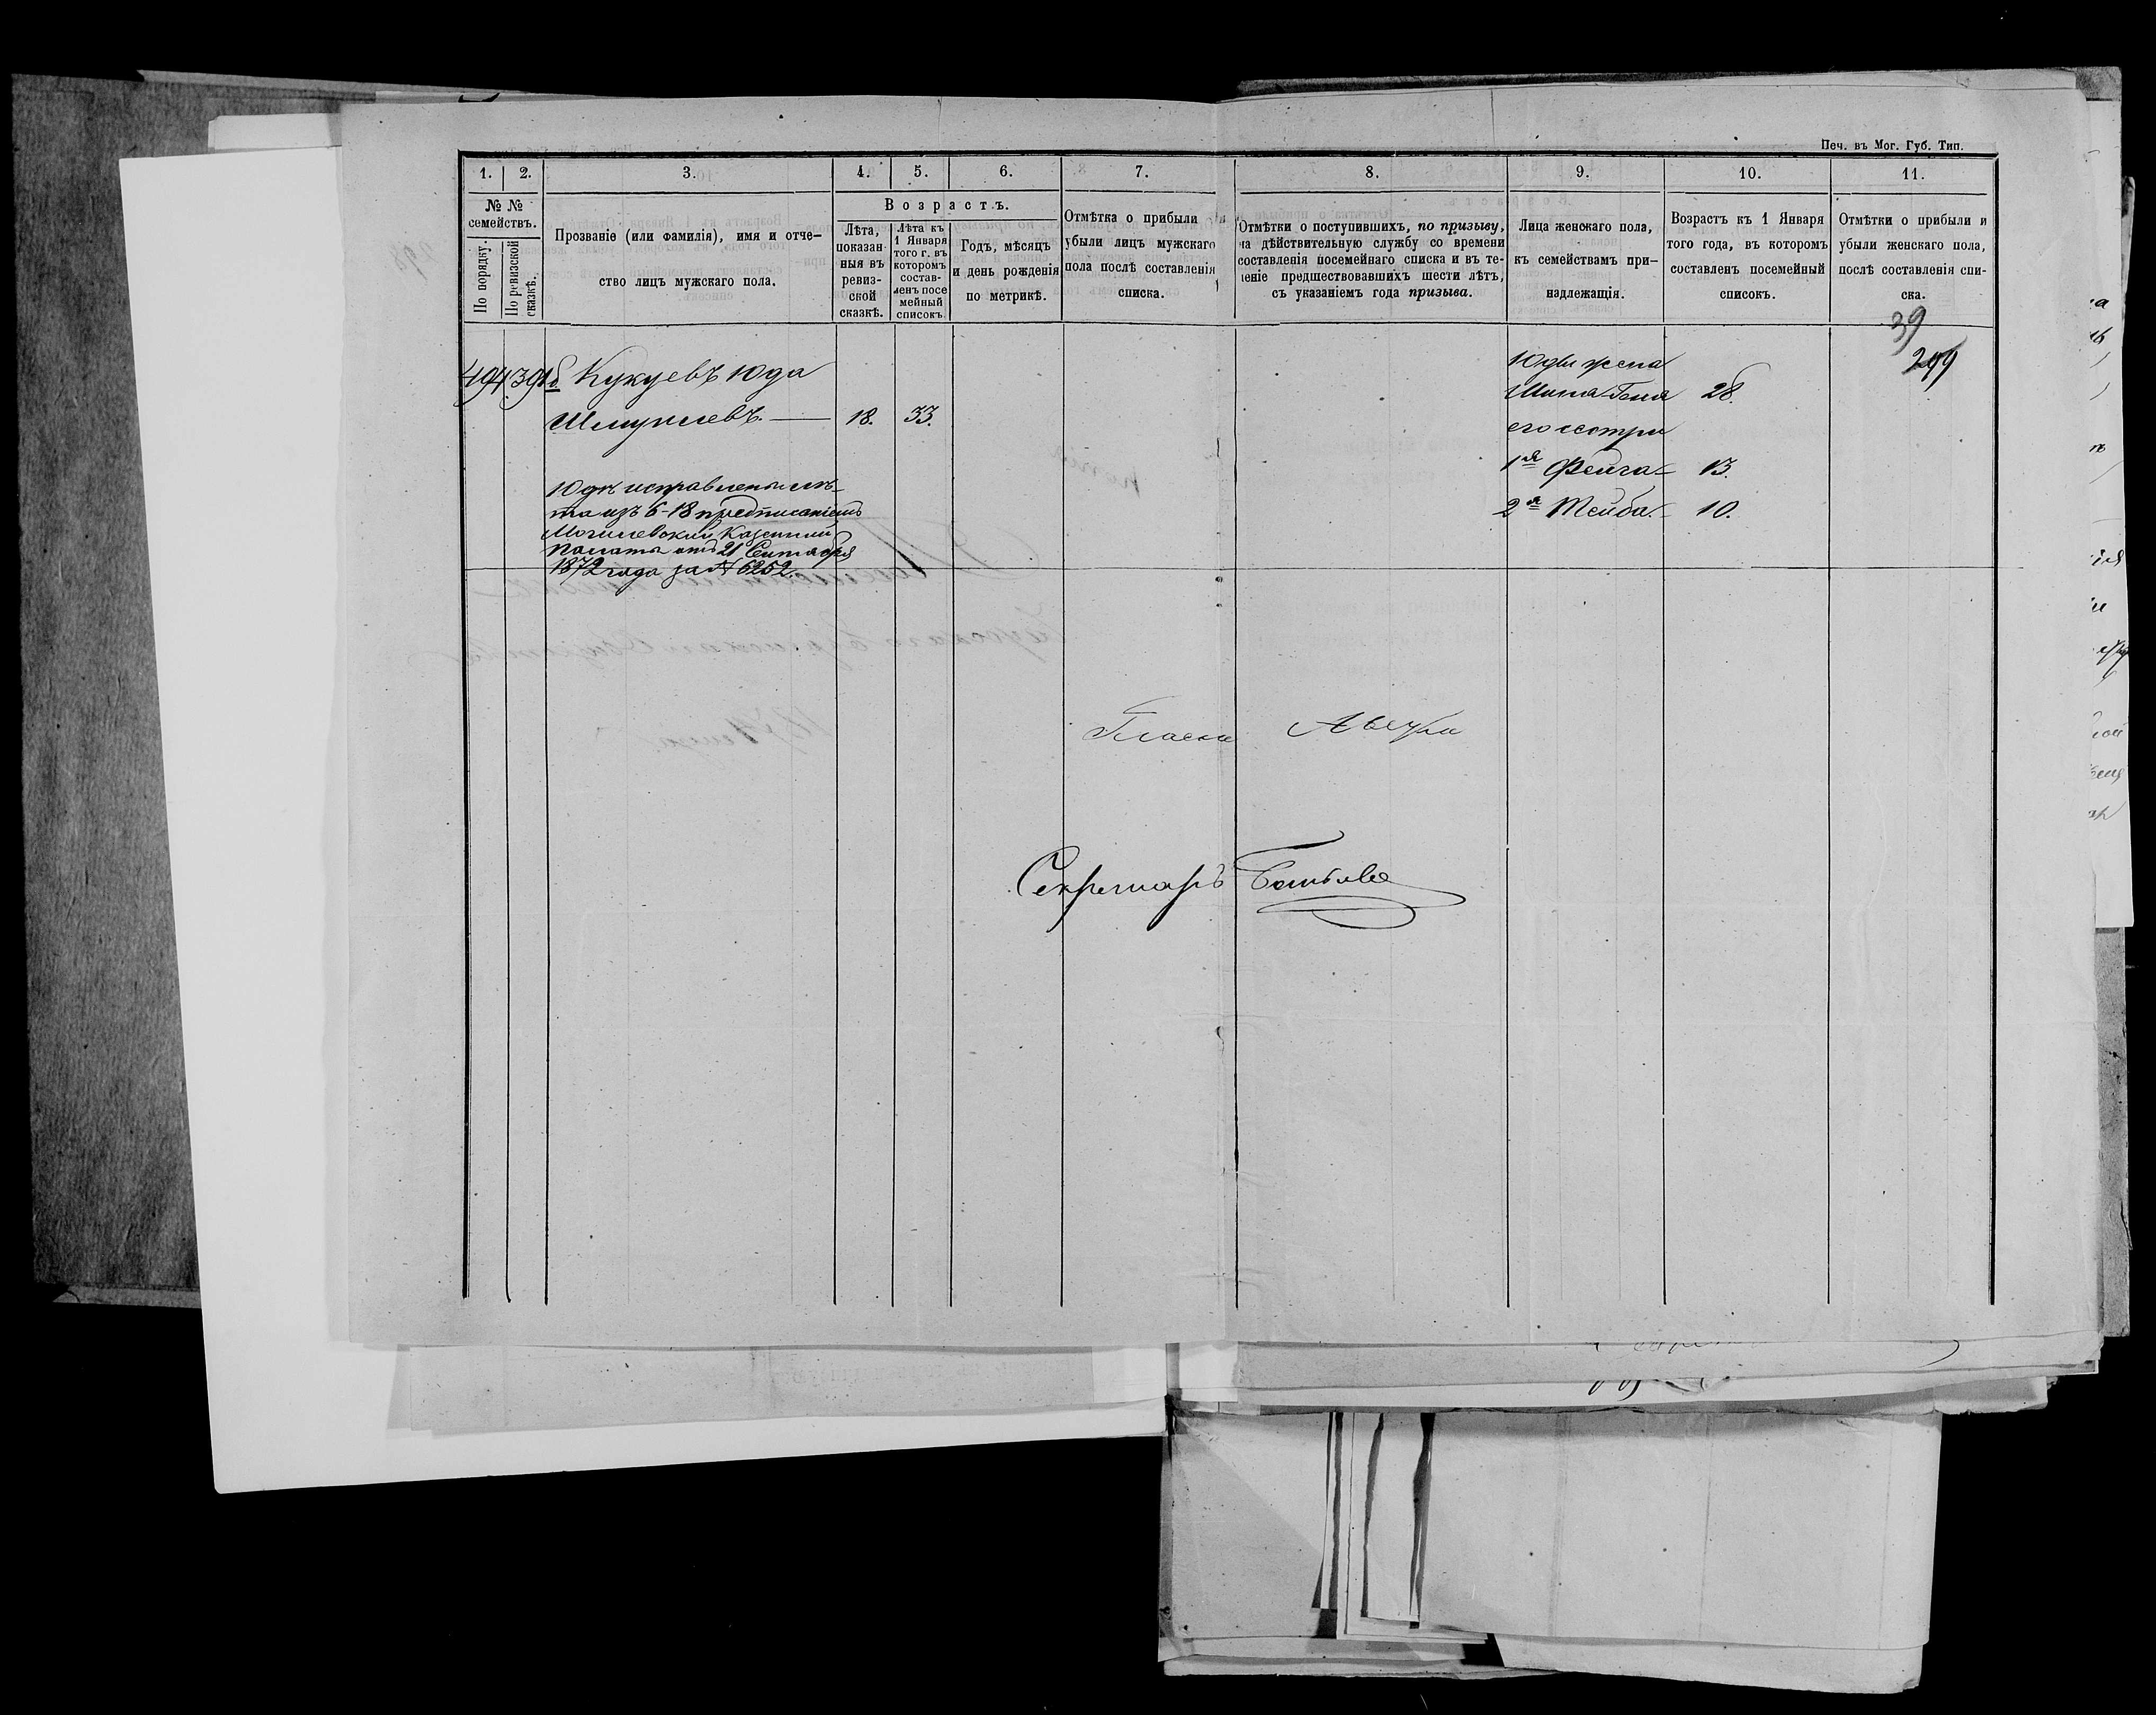 Печ. въ Мог. Губ. Тип.
1. 2. 3. 4. 5. 6. 7. 8. 9. 10. 11.
№ №
семействъ.
По порядку.
По ревизской
сказкѣ.
Прозваніе (или фамилія), имя и отче-
ство лицъ мужскаго пола.
Возрастъ.
Лѣта,
показан-
ныя въ
ревиз-
ской
сказкѣ.
Лѣта къ
1 Января
того г. въ
которомъ
состав-
ленъ посе
мейный
списокъ.
Годъ, мѣсяцъ
и день рожденія
по метрикѣ.
Отмѣтка о прибыли и
убыли лицъ мужскаго
пола послѣ составленія
списка.
Отмѣтки о поступившихъ, по призыву,
на дѣйствительную службу со времени
составленія посемейнаго списка и въ те-
ченіе предшествовавшихъ шести лѣтъ,
съ указаніемъ года призыва.
Лица женскаго пола,
къ семействамъ при-
надлежащія.
Возрастъ къ 1 Января
того года, въ которомъ
составленъ посемейный
списокъ.
Отмѣтки о прибыли и
убыли женскаго пола,
послѣ составленія спи-
ска.
39
299
494 391 Кукуевъ Юда
Шмуилевъ. — 18. 33.
Юдѣ исправлены лѣ-
та изъ 6-18 предписаніемъ
Могилевской Казенной
Палаты отъ 21 Сентября
1872 года за № 6252.
Юды жена
28.
его сестры
1я Фейга - 13.
2я Тейба. - 10.
Секретарь